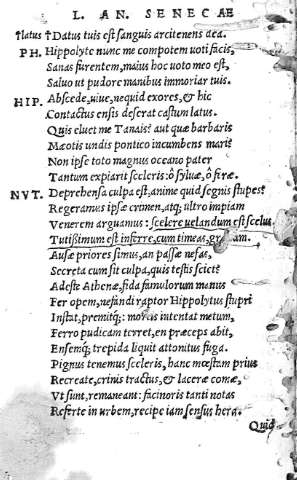 L. AN. SENECAE
†latus †Datus tuis est sanguis arcitenens dea.
PH. Hippolyte nunc me compotem uoti facis,
Sanas furentem, maius hoc uoto meo est,
Saluo ut pudore manibus immoriar tuis.
HIP. Abscede, uiue, nequid exores, & hic
Contactus ensis deserat castum latus.
Quis eluet me Tanais? aut quæ barbaris
Mæotis undis pontico incumbens mari?
Non ipse toto magnus oceano pater
Tantum expiarit sceleris: ô syluæ, ô feræ.
NVT. Deprehensa culpa est, anime quid segnis stupes?
Regeramus ipsæ crimen, atq; ultro impiam
Venerem arguamus: scelere uelandum est scelus
Tutissimum est inferre, cum timeas,
Ausæ priores simus, an passæ nefas,
Secreta cum sit culpa, quis testis sciet?
Adeste Athenæ, fida famulorum manus
Fer opem, nefandi raptor Hippolytus stupri
Instat, premitq;: mortis intentat metum,
Ferro pudicam terret, en præceps abit,
Ensemq; trepida liquit attonitus fuga.
Pignus tenemus sceleris, hanc mœstam prius
Recreate, crinis tractus, & laceræ comæ,
Vt sunt, remaneant: facinoris tanti notas
Referte in urbem, recipe iam sensus hera.
Quid